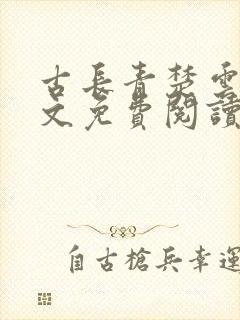 古長青楚雲
文免費閱讀
自古槍兵幸運